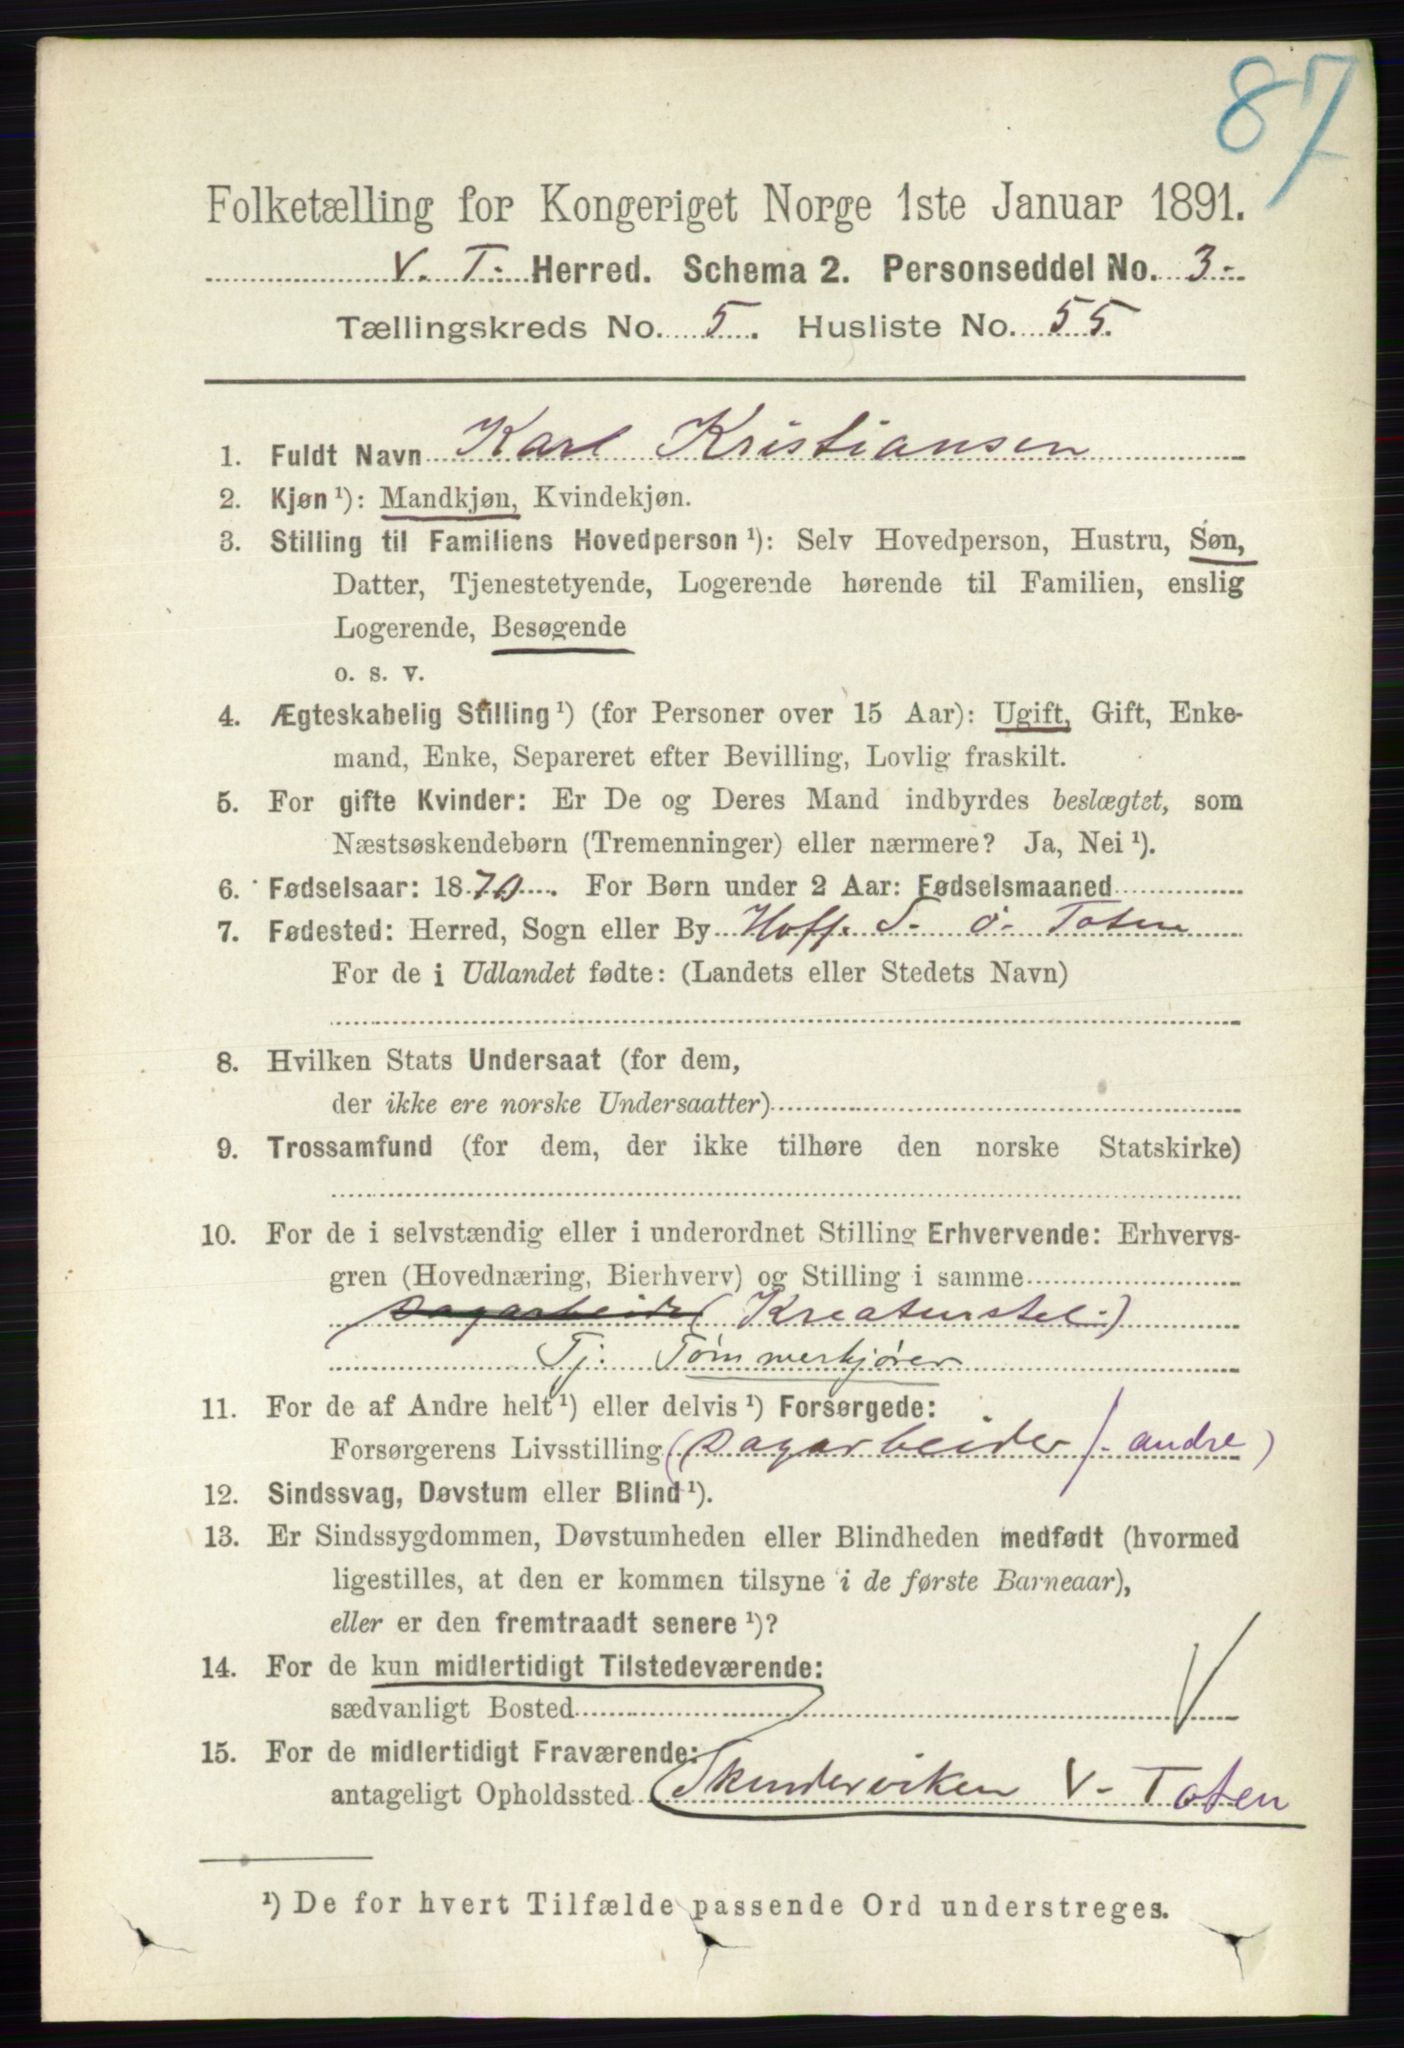 87
Folketælling for Kongeriget Norge 1ste Januar 1891.
V. T. Herred. Schema 2. Personseddel No. 3-
Tællingskreds No. 5. Husliste No. 55.
1. Fuldt Navn Karl Kristiansen
2. Kjøn ¹): Mandkjøn, Kvindekjøn.
3. Stilling til Familiens Hovedperson ¹): Selv Hovedperson, Hustru, Søn,
Datter, Tjenestetyende, Logerende hørende til Familien, enslig
Logerende, Besøgende
o. s. v.
4. Ægteskabelig Stilling ¹) (for Personer over 15 Aar): Ugift, Gift, Enke-
mand, Enke, Separeret efter Bevilling, Lovlig fraskilt.
5. For gifte Kvinder: Er De og Deres Mand indbyrdes beslægtet, som
Næstsøskendebørn (Tremenninger) eller nærmere? Ja, Nei ¹).
6. Fødselsaar: 1870. For Børn under 2 Aar: Fødselsmaaned
7. Fødested: Herred, Sogn eller By Hoff. S. Ø. Toten
For de i Udlandet fødte: (Landets eller Stedets Navn)
8. Hvilken Stats Undersaat (for dem,
der ikke ere norske Undersaatter)
9. Trossamfund (for dem, der ikke tilhøre den norske Statskirke)
10. For de i selvstændig eller i underordnet Stilling Erhvervende: Erhvervs-
gren (Hovednæring, Bierhverv) og Stilling i samme
Dagarbeider (Kreaturstel.)
Tj. Tømmerkjører
11. For de af Andre helt ¹) eller delvis ¹) Forsørgede:
Forsørgerens Livsstilling (Dagarbeider /. andre)
12. Sindssvag, Døvstum eller Blind ¹).
13. Er Sindssygdommen, Døvstumheden eller Blindheden medfødt (hvormed
ligestilles, at den er kommen tilsyne i de første Barneaar),
eller er den fremtraadt senere ¹)?
14. For de kun midlertidigt Tilstedeværende:
sædvanligt Bosted V
15. For de midlertidigt Fraværende:
antageligt Opholdssted Skunderviken V- Toten
¹) De for hvert Tilfælde passende Ord understreges.